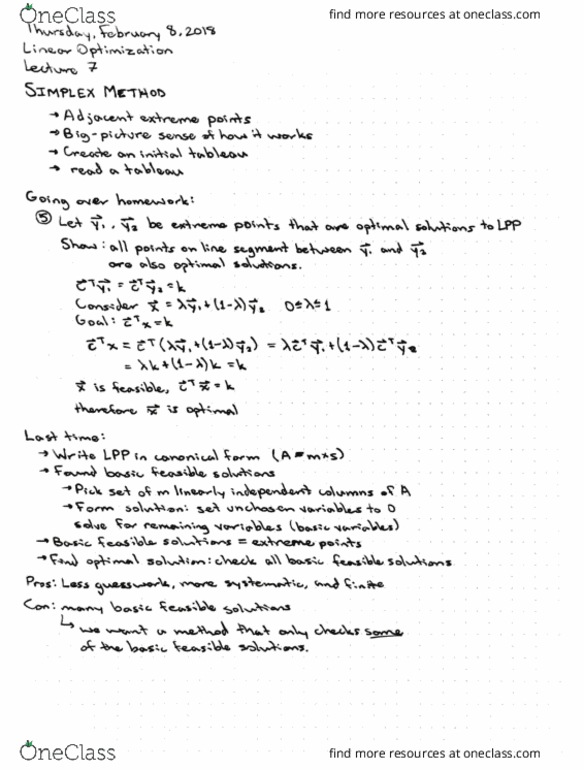 OneClass
find more resources at oneclass.com
Thursday, February 8, 2018
Linear Optimization
Lecture 7
SIMPLEX METHOD
→ Adjacent extreme points
→ Big-picture sense of how it works
→ Create an initial tableau
→ read a tableau
Going over homework:
⑤ Let y⃗₁, y⃗₂ be extreme points that are optimal solutions to LPP
Show: all points on line segment between y⃗₁ and y⃗₂
are also optimal solutions.
c⃗ᵀy⃗₁ = c⃗ᵀy⃗₂ = k
Consider x⃗ = λy⃗₁ + (1-λ)y⃗₂ 0≤λ≤1
Goal: c⃗ᵀx = k
c⃗ᵀx = c⃗ᵀ(λy⃗₁ + (1-λ)y⃗₂) = λc⃗ᵀy⃗₁ + (1-λ)c⃗ᵀy⃗₂
= λk + (1-λ)k = k
x⃗ is feasible, c⃗ᵀx⃗ = k
therefore x⃗ is optimal
Last time:
→ Write LPP in canonical form (A = m×s)
→ Found basic feasible solutions
→ Pick set of m linearly independent columns of A
→ Form solution: set unchosen variables to 0
solve for remaining variables (basic variables)
→ Basic feasible solutions = extreme points
→ Find optimal solution: check all basic feasible solutions
Pros: Less guesswork, more systematic, and finite
Con: many basic feasible solutions
↳ we want a method that only checks some
of the basic feasible solutions.
OneClass
find more resources at oneclass.com